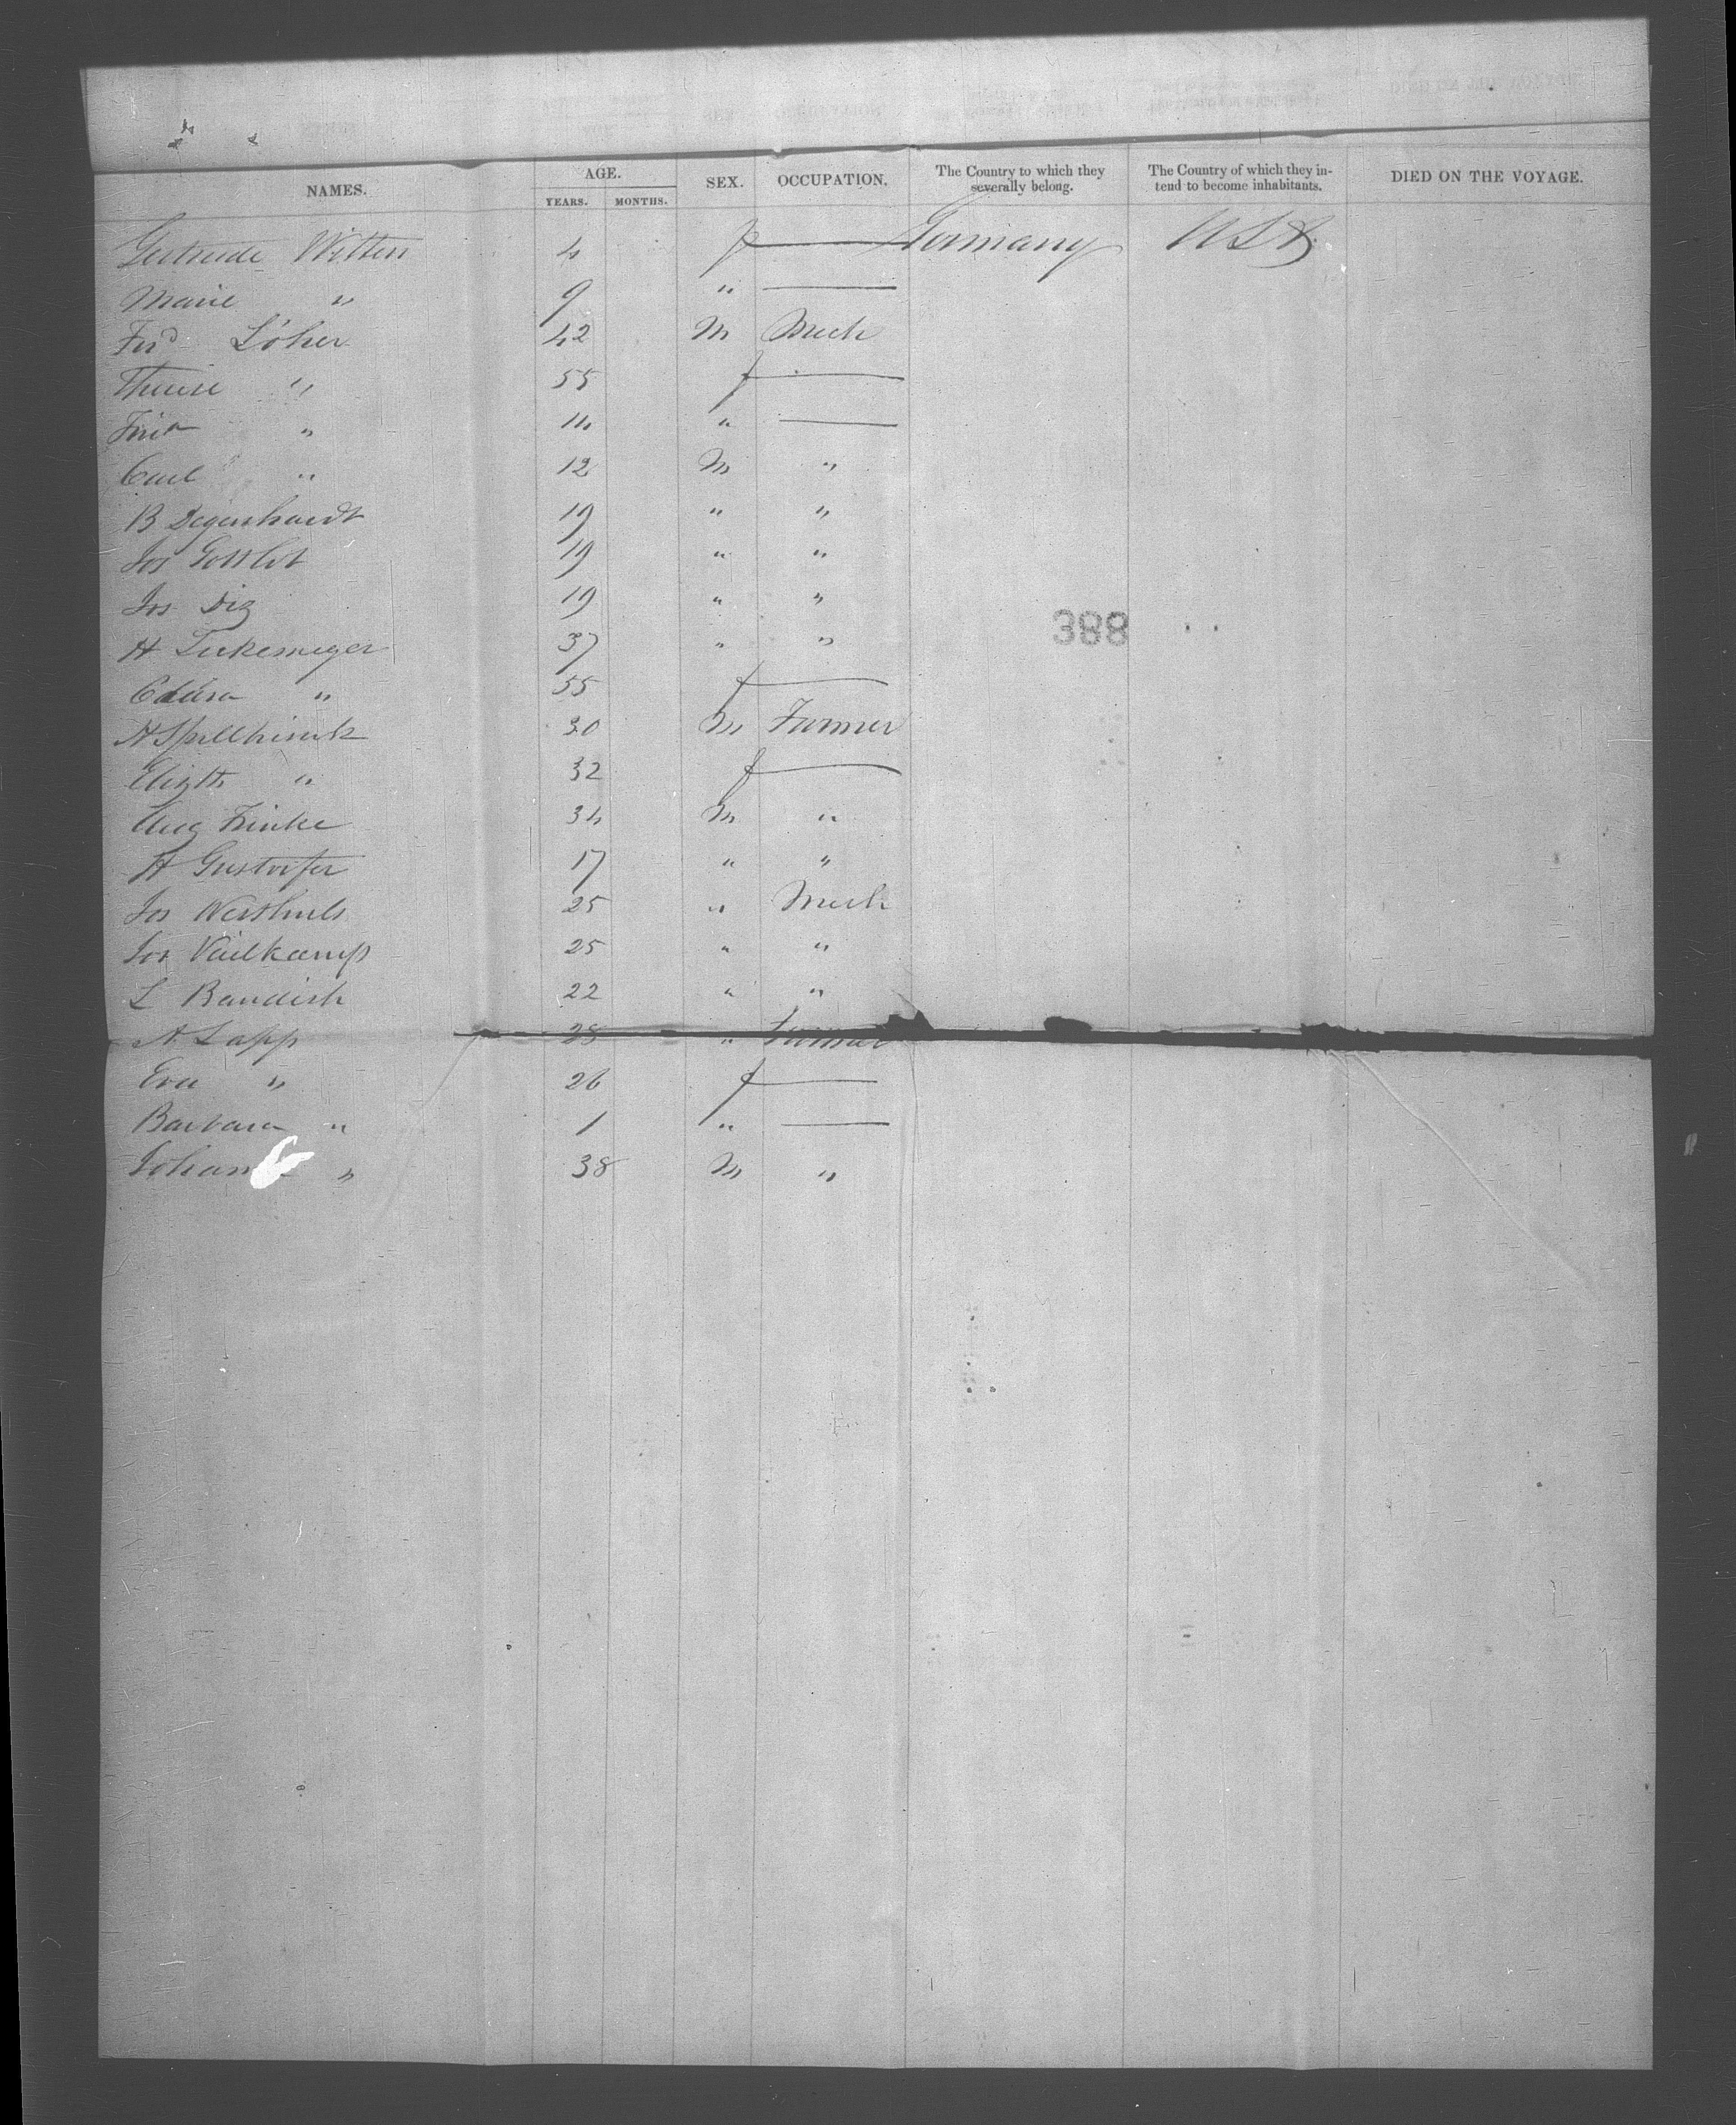 NAMES. AGE. YEARS. MONTHS. SEX. OCCUPATION. The Country to which they severally belong. The Country of which they intend to become inhabitants. DIED ON THE VOYAGE.
Gertrude Witten 4 f — Germany USA
Marie " 9 " —
Ferd Löher 42 M Mech
Therese " 55 f —
" 14 " —
Carl " 12 M "
B Degenhardt 19 " "
Jos Gottlob 19 " "
Jos Diz 19 " "
388
H 37 " "
" 55 f —
H 30 M Farmer
Elizth " 32 f —
Aug Finke 34 M "
H Gustorfer 17 " "
Jos 25 " Mech
Jos Vailkamp 25 " "
L Baudish 22 " "
A Lapp 28 " Farmer
Eva " 26 f —
Barbara " 1 " —
Johann " 38 M "